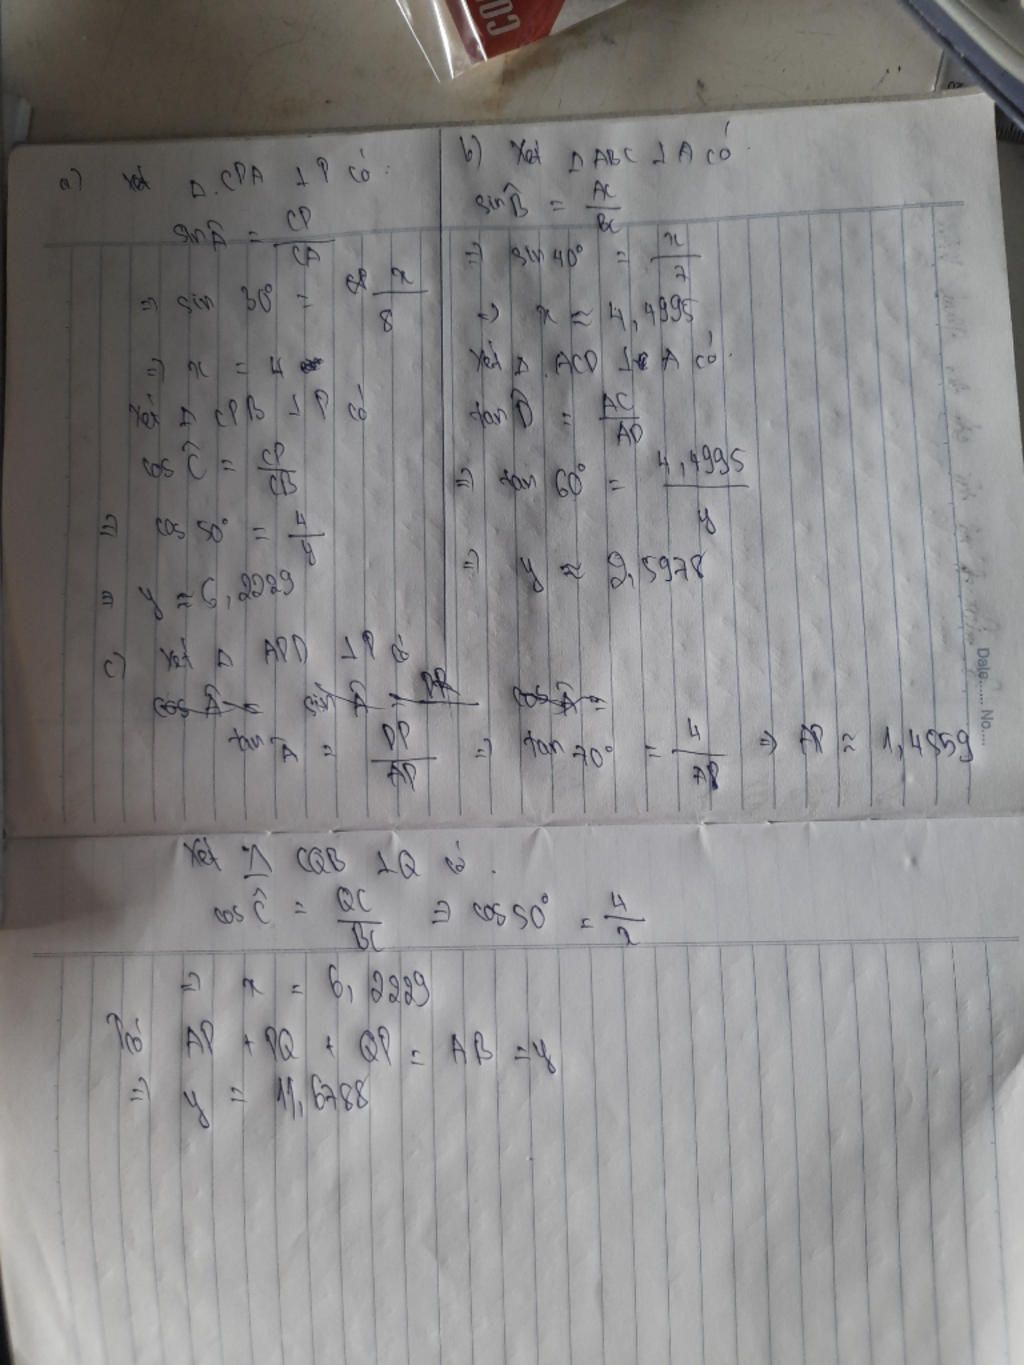 a) Xét Δ CPA ⊥ P có:
sin Â = CP/CA
=> sin 30° = x/8
=> x = 4
Xét Δ CPB ⊥ P có
cos Ĉ = CP/CB
=> cos 50° = 4/y
=> y ≈ 6,2229
b) Xét Δ ABC ⊥ A có
sin B̂ = AC/BC
=> sin 40° = x/7
=> x ≈ 4,4995
Xét Δ ACD ⊥ A có:
tan D̂ = AC/AD
=> tan 60° = 4,4995/y
=> y ≈ 2,5978
c) Xét Δ APD ⊥ P có
tan Â = DP/AP => tan 70° = 4/AP => AP ≈ 1,4559
Xét Δ CQB ⊥ Q có.
cos Ĉ = QC/BC => cos 50° = 4/x
=> x = 6,2229
Có AP + PQ + QP = AB = y
=> y = 11,6788
Date...... No....
CO